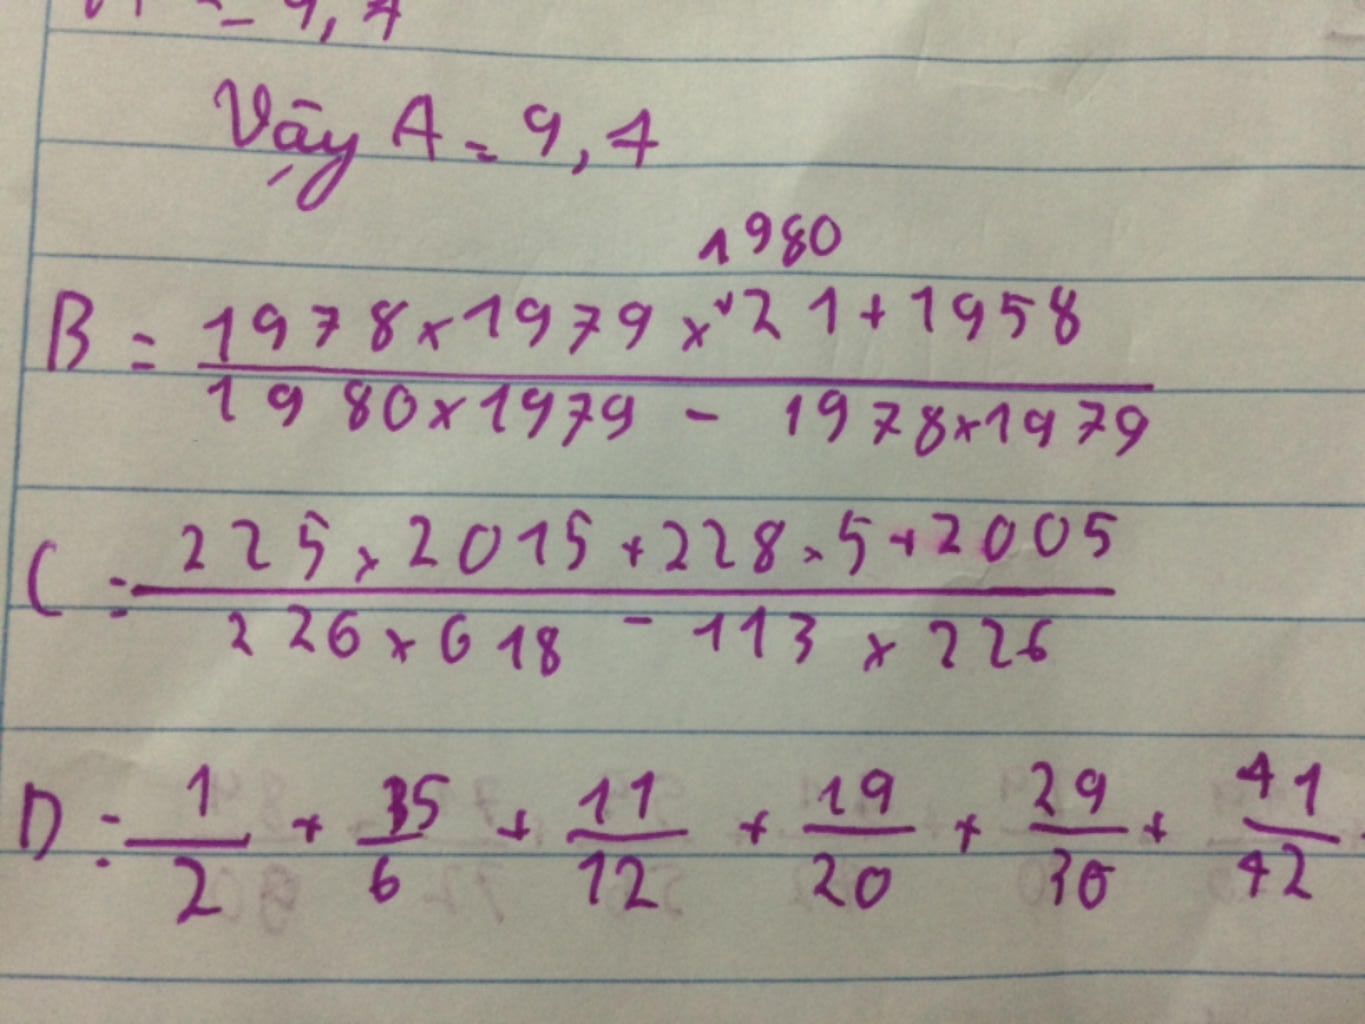 = 9,4
Vậy A = 9,4
1980
B = 1978 x 1979 x 21 + 1958
1980 x 1979 - 1978 x 1979
C = 225 x 2015 + 228 x 5 + 2005
226 x 618 - 113 x 226
D = 1/2 + 5/6 + 11/12 + 19/20 + 29/30 + 41/42